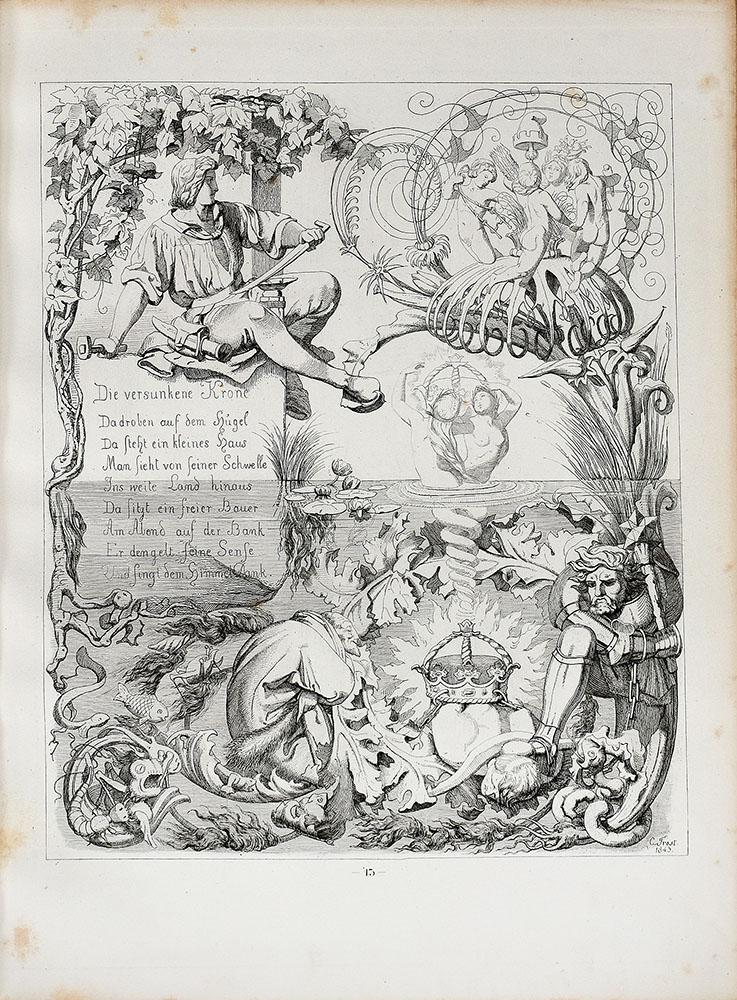 Die versunkene Krone
Da droben auf dem Hügel
Da steht ein kleines Haus
Man sieht von seiner Schwelle
Ins weite Land hinaus
Da sitzt ein freier Bauer
Am Abend auf der Bank
Er dengelt seine Sense
Und singt dem Himmel Dank.
1843.
— 13 —